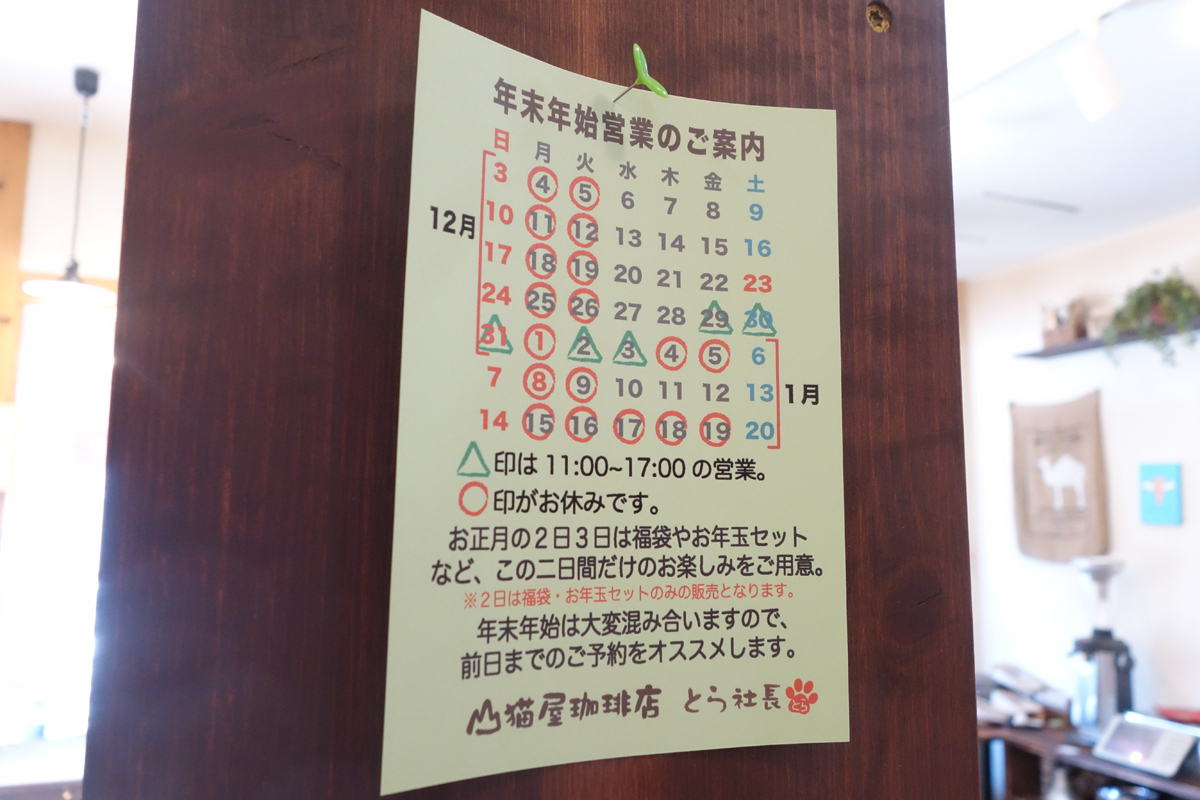 年末年始営業のご案内
日 月 火 水 木 金 土
3 4 5 6 7 8 9
12月
10 11 12 13 14 15 16
17 18 19 20 21 22 23
24 25 26 27 28 29 30
31 1 2 3 4 5 6
7 8 9 10 11 12 13
1月
14 15 16 17 18 19 20
△印は 11:00~17:00 の営業。
○印がお休みです。
お正月の2日3日は福袋やお年玉セット
など、この二日間だけのお楽しみをご用意。
※2日は福袋・お年玉セットのみの販売となります。
年末年始は大変混み合いますので、
前日までのご予約をオススメします。
山猫屋珈琲店 とら社長
とら